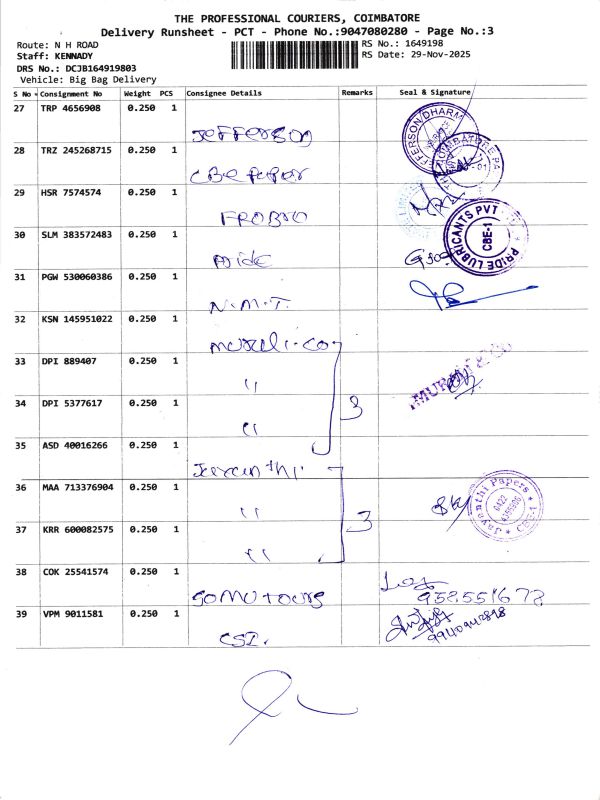 THE PROFESSIONAL COURIERS, COIMBATORE
Delivery Runsheet - PCT - Phone No.:9047080280 - Page No.:3
Route: N H ROAD
RS No.: 1649198
Staff: KENNADY
RS Date: 29-Nov-2025
DRS No.: DCJB164919803
Vehicle: Big Bag Delivery
S No Consignment No Weight PCS Consignee Details Remarks Seal & Signature
27 TRP 4656908 0.250 1
Jefferson
28 TRZ 245268715 0.250 1
CBE Paper
29 HSR 7574574 0.250 1
FROBRO
30 SLM 383572483 0.250 1
PRIDE LUBRICANTS PVT
CBE-1
31 PGW 530060386 0.250 1
N.M.T.
32 KSN 145951022 0.250 1
murali.co
33 DPI 889407 0.250 1
"
34 DPI 5377617 0.250 1
" 3
35 ASD 40016266 0.250 1
36 MAA 713376904 0.250 1
"
Jayanthi Papers
0422
CBE-1
37 KRR 600082575 0.250 1
" 3
38 COK 25541574 0.250 1
somu tours
39 VPM 9011581 0.250 1
CSI.